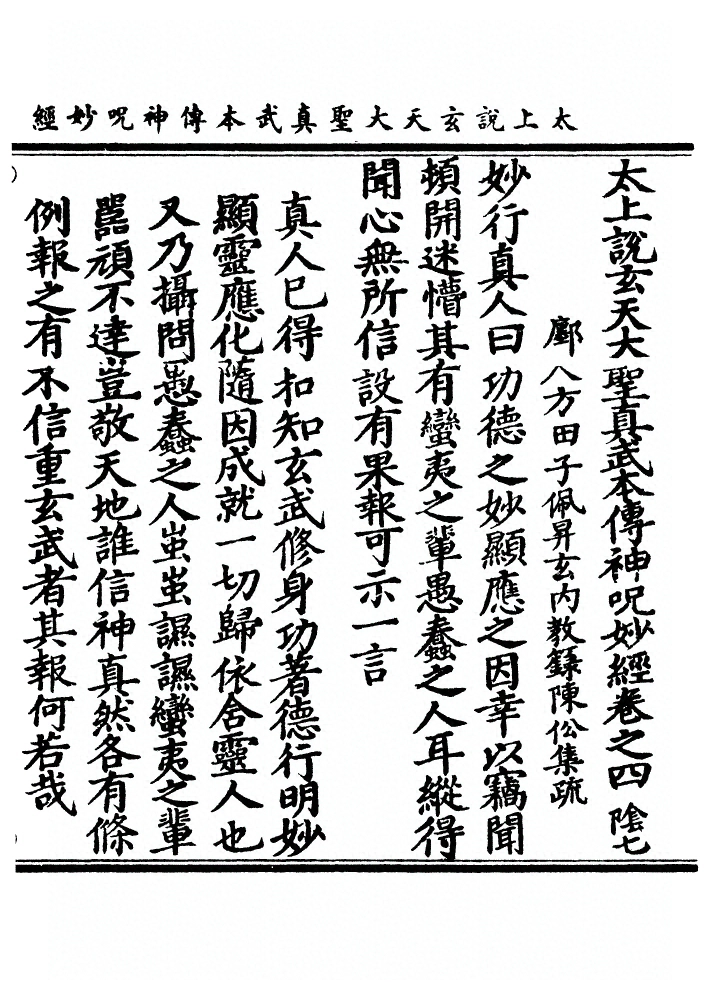 太上說玄天大聖真武本傳神呪妙經
太上說玄天大聖真武本傳神呪妙經卷之四 陰七
鄽八方田子佩昇玄內教籙陳伀集疏
妙行真人曰功德之妙顯應之因幸以竊聞
頓開迷懵其有蠻夷之輩愚蠢之人耳縱得
聞心無所信設有果報可示一言
真人已得扣知玄武修身功著德行明妙
顯靈應化隨因成就一切歸依含靈人也
又乃攝問愚蠢之人蚩蚩𧬈𧬈蠻夷之輩
嚚頑不達豈敬天地誰信神真然各有條
例報之有不信重玄武者其報何若哉